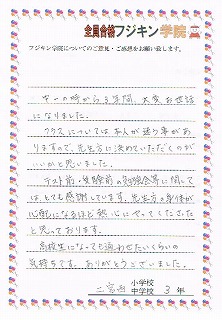 全員合格フジキン学院
フジキン学院についてのご意見・ご感想をお願い致します。
中一の時から3年間、大変お世話
になりました。
クラスについては本人が迷う事があ
りますので、先生方に決めていただくのが
いいかと思いました。
テスト前・受験前の勉強会等に関して
は、とても感謝しています。先生方のお体が
心配になるほど熱心にやってくださった
と思っております。
高校生になっても通わせたいくらいの
気持ちです。ありがとうございました。
二宮西 小学校
中学校 3年